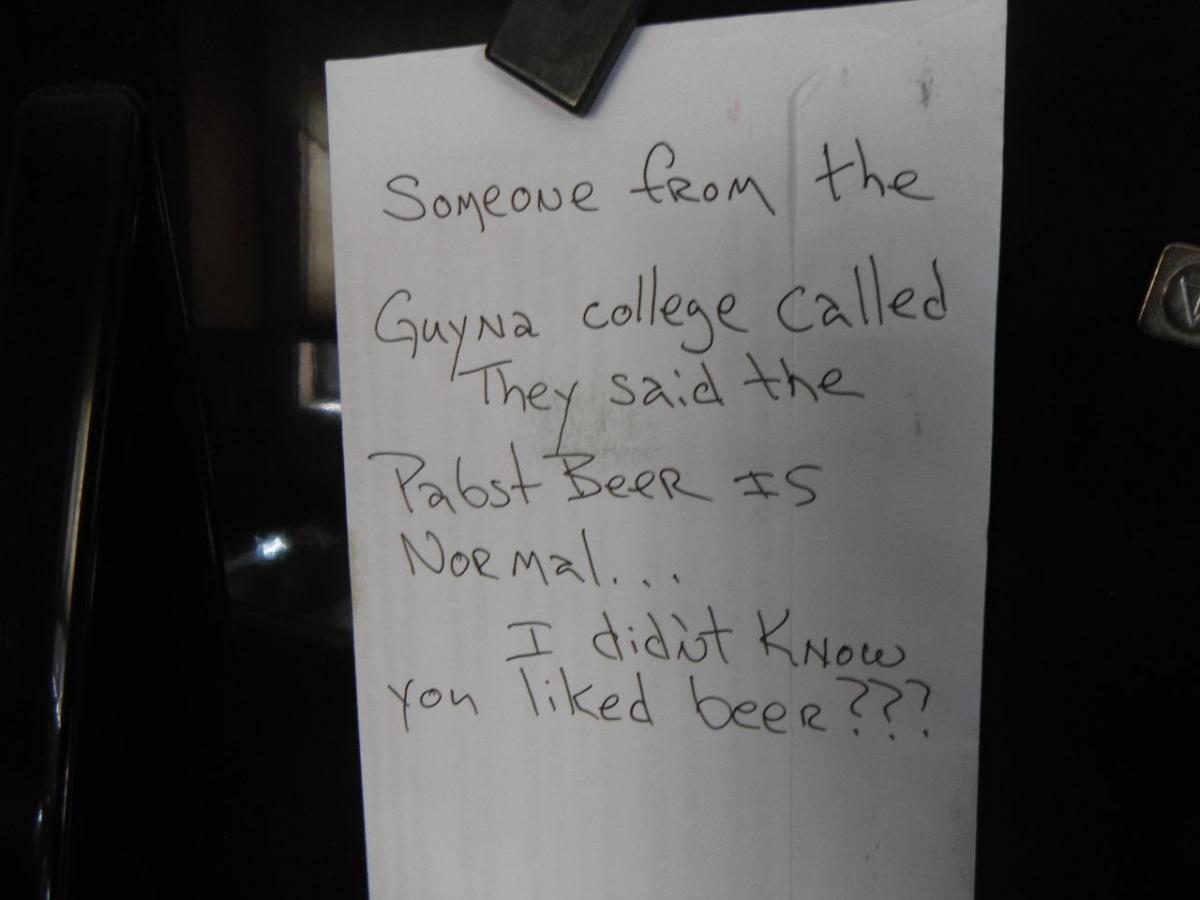 Someone from the
Guyna college called
They said the
Pabst Beer is
Normal...
I didn't know
you liked beer???